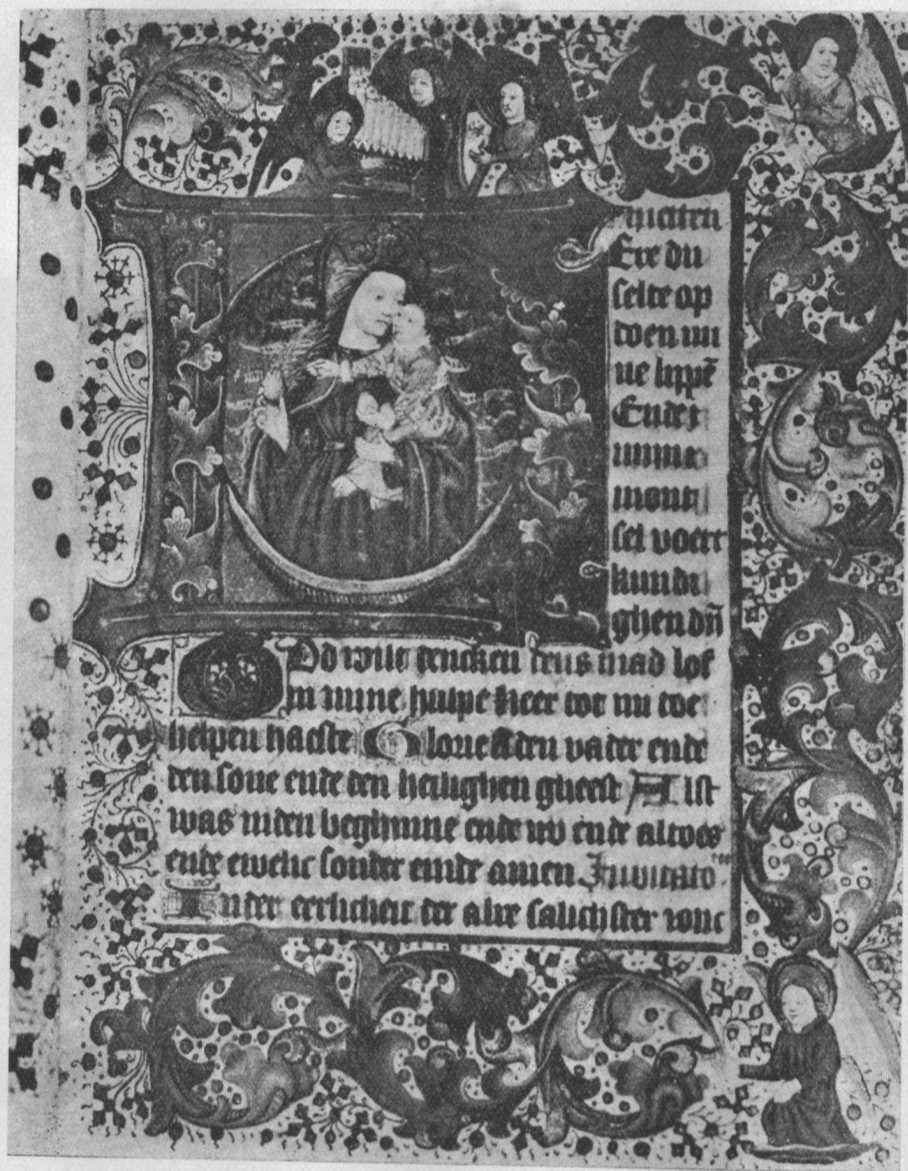 maten
Ere du
selte op
doen mi
ne lippē
Ende
mine
mont
sel voert
kundi
ghen dīn
God wilt dencken deus in ad
in mine hulpe Heer toe mi toe
helpen haeste Gloue den vader ende
den sone ende den heilighen gheest Alst
was inden beghinne ende nv ende altoes
ende ewelic sonder einde amen Inuitato
Inder eerlicheit der alre salichster ionc